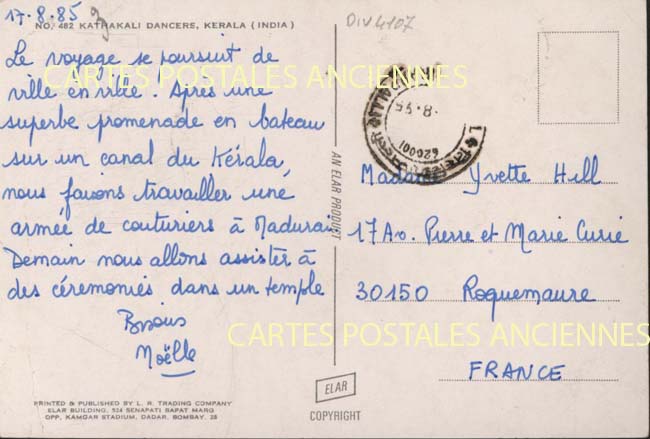 17.8.85
DIV4107
NO. 482 KATHAKALI DANCERS, KERALA (INDIA)
Le voyage se poursuit de
ville en ville. Après une
superbe promenade en bateau
sur un canal du Kérala,
nous faisons travailler une
armée de couturiers à Madurai
Demain nous allons assister à
des céremonies dans un temple
Bisous
Noëlle
PRINTED & PUBLISHED BY L. R. TRADING COMPANY
ELAR BUILDING, 524 SENAPATI BAPAT MARG
OPP. KAMGAR STADIUM, DADAR, BOMBAY. 28
AN ELAR PRODUCT
ELAR
COPYRIGHT
620001
Madame Yvette Hill
17 Av. Pierre et Marie Curie
30150 Roquemaure
FRANCE
CARTES POSTALES ANCIENNES
CARTES POSTALES ANCIENNES